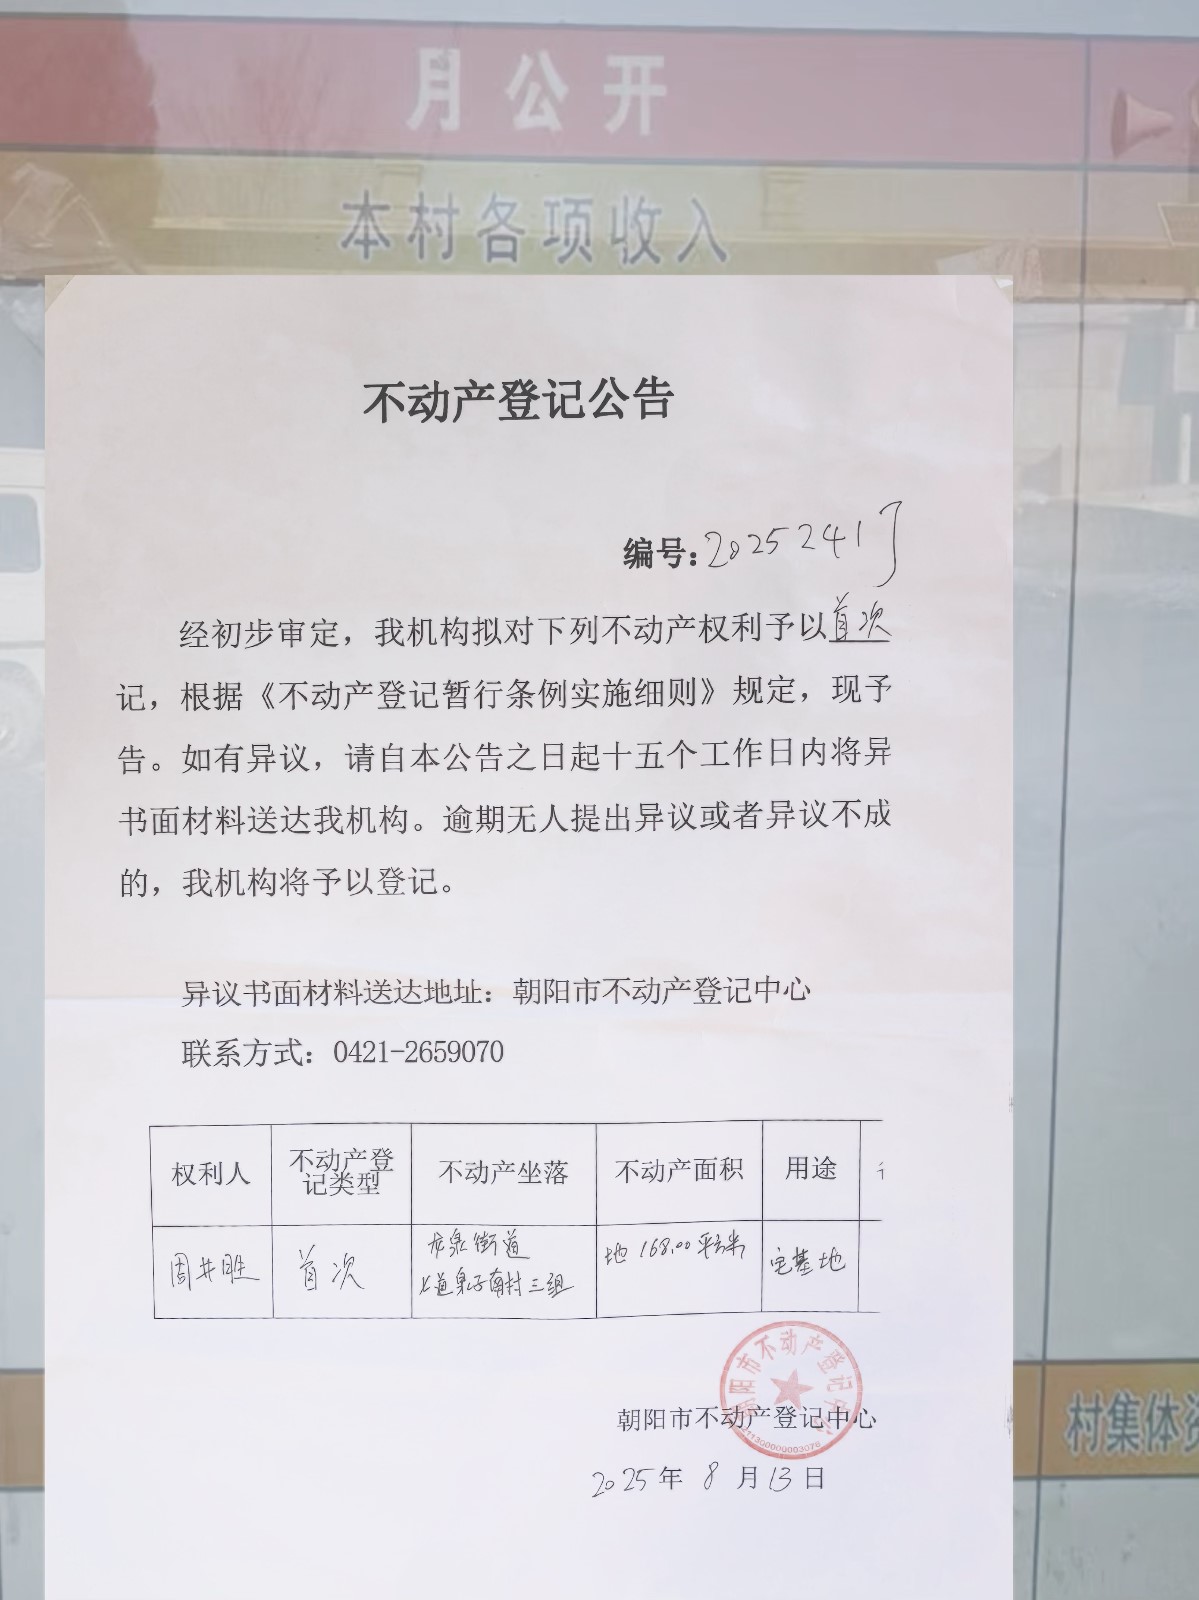 月公开
本村各项收入
不动产登记公告
编号:2025241
经初步审定，我机构拟对下列不动产权利予以首次
记，根据《不动产登记暂行条例实施细则》规定，现予
告。如有异议，请自本公告之日起十五个工作日内将异
书面材料送达我机构。逾期无人提出异议或者异议不成
的，我机构将予以登记。
异议书面材料送达地址：朝阳市不动产登记中心
联系方式：0421-2659070
权利人 不动产登记类型 不动产坐落 不动产面积 用途
周井胜 首次 龙泉街道 地 168.00 平方米 宅基地
泉子南村三组
朝阳市不动产登记中心
朝阳市不动产登记中心
2025年 8 月 13 日
村集体资